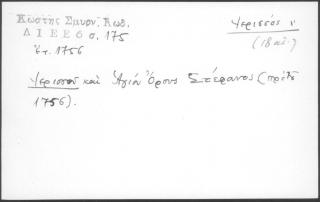 Κωστῆς Σμυρν. Κωδ.
ΔΙΕΕ 6 σ. 175
ἔτ. 1756
Ἱερισσός
(18 αἰ.)
Ἱερισσοῦ καὶ Ἁγίου Ὄρους Στέφανος (πρὸ τοῦ
1756).